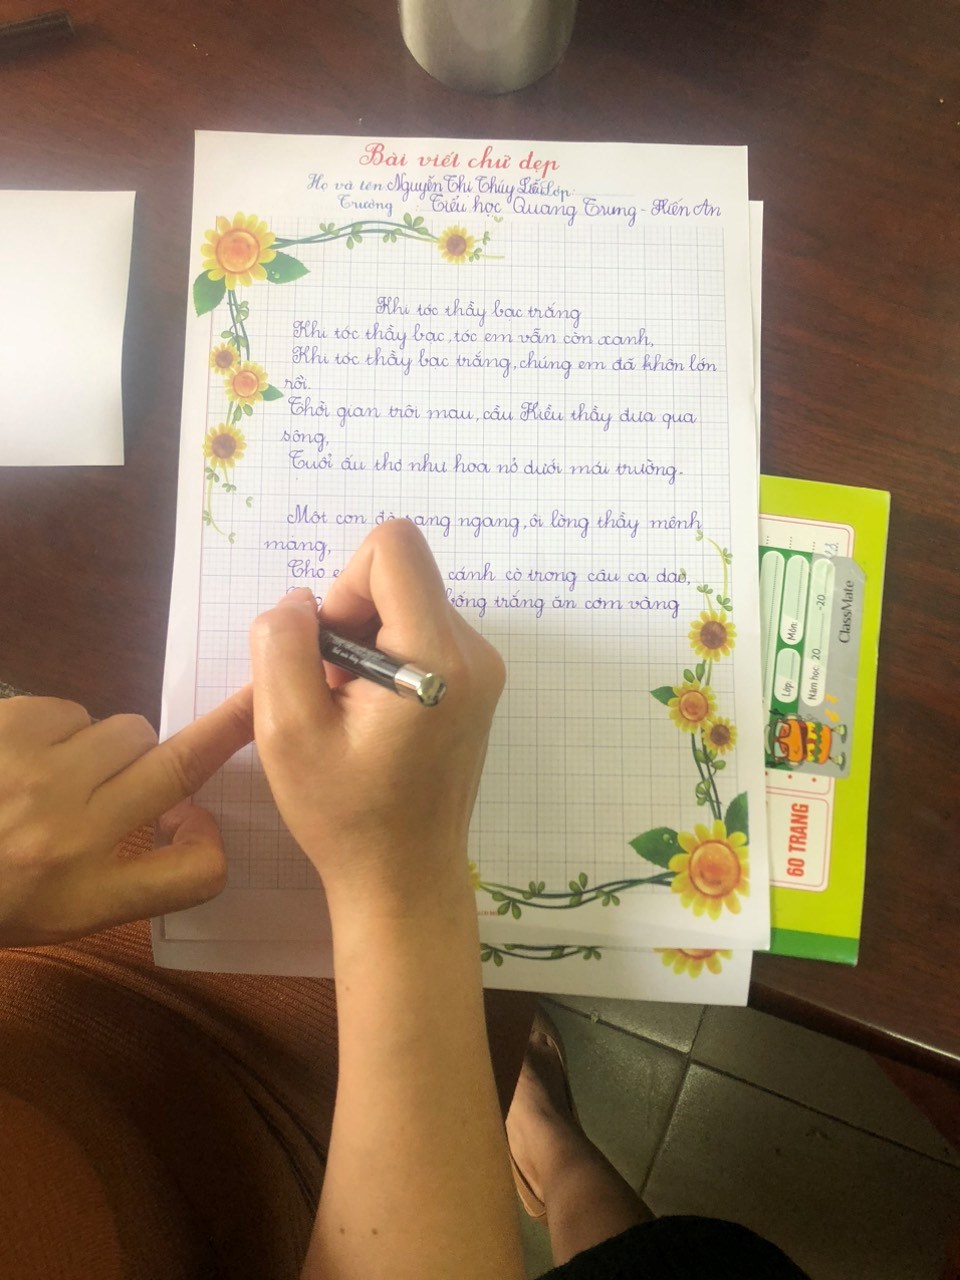 Bài viết chữ đẹp
Họ và tên Nguyễn Thị Thúy Liễu Lớp:
Trường : Tiểu học Quang Trung - Kiến An
Khi tóc thầy bạc trắng
Khi tóc thầy bạc, tóc em vẫn còn xanh,
Khi tóc thầy bạc trắng, chúng em đã khôn lớn
rồi.
Thời gian trôi mau, cầu Kiều thầy đưa qua
sông,
Tuổi ấu thơ như hoa nở dưới mái trường.
Một con đò sang ngang, ôi lòng thầy mênh
mang,
Cho cánh cò trong câu ca dao,
bống trắng ăn cơm vàng
Lớp:
Môn:
Năm học: 20 -20
ClassMate
60 TRANG